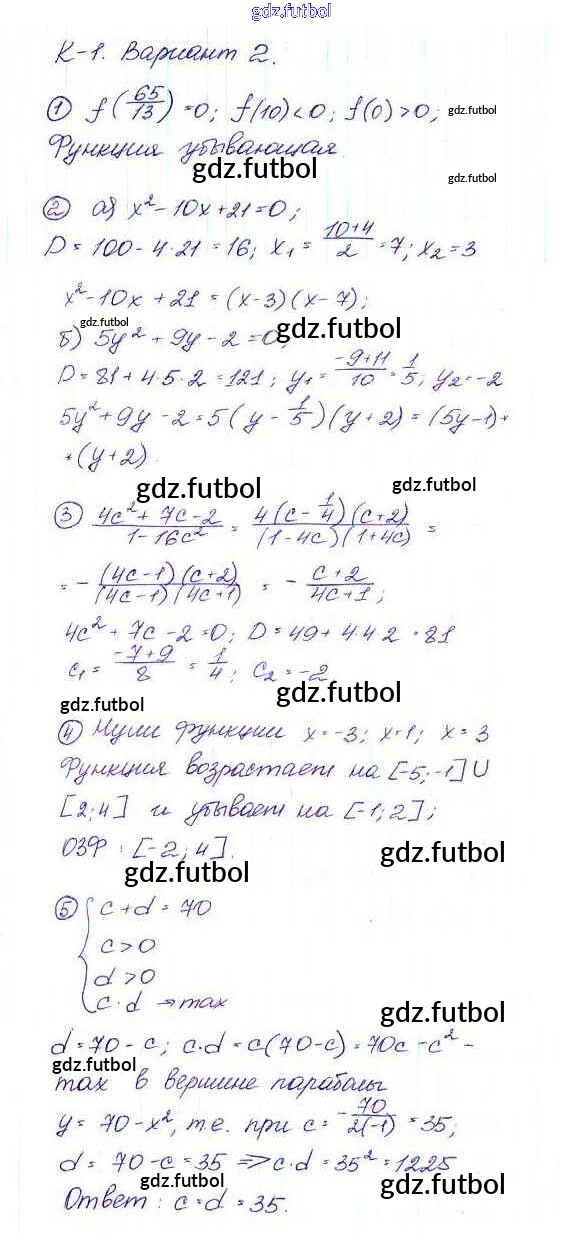 gdz.futbol
К-1. Вариант 2.
① f(65/13) = 0; f(10) < 0; f(0) > 0; gdz.futbol
Функция убывающая
gdz.futbol
gdz.futbol
② а) x² - 10x + 21 = 0;
D = 100 - 4·21 = 16; x₁ = (10+4)/2 = 7; x₂ = 3
x² - 10x + 21 = (x-3)(x-7);
gdz.futbol
gdz.futbol
б) 5y² + 9y - 2 = 0;
D = 81 + 4·5·2 = 121; y₁ = (-9+11)/10 = 1/5; y₂ = -2
5y² + 9y - 2 = 5(y - 1/5)(y+2) = (5y-1)*
*(y+2).
gdz.futbol
gdz.futbol
③ (4c² + 7c - 2)/(1 - 16c²) = (4(c - 1/4)(c+2))/((1-4c)(1+4c)) =
= - ((4c-1)(c+2))/((4c-1)(4c+1)) = - (c+2)/(4c+1);
4c² + 7c - 2 = 0; D = 49 + 4·4·2 = 81
c₁ = (-7+9)/8 = 1/4; c₂ = -2
gdz.futbol
gdz.futbol
④ Нули функции x = -3; x = 1; x = 3
Функция возрастает на [-5; -1] U
[2; 4] и убывает на [-1; 2];
ОЗФ : [-2; 4].
gdz.futbol
gdz.futbol
⑤ { c + d = 70
c > 0
d > 0
c · d → max
gdz.futbol
d = 70 - c; c·d = c(70-c) = 70c - c² -
gdz.futbol
max в вершине параболы
y = 70 - x², т.е. при c = - 70/2(-1) = 35;
d = 70 - c = 35 => c·d = 35² = 1225
gdz.futbol
gdz.futbol
Ответ : c = d = 35.